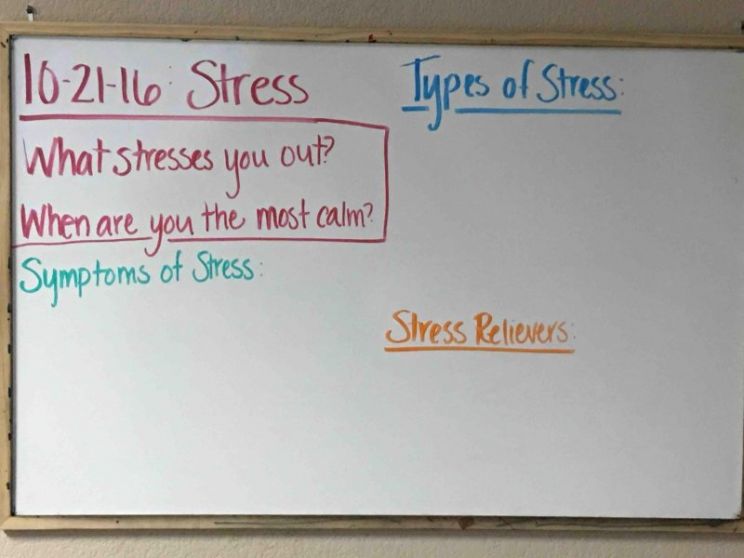 10-21-16: Stress
What stresses you out?
When are you the most calm?
Symptoms of Stress:
Types of Stress:
Stress Relievers: